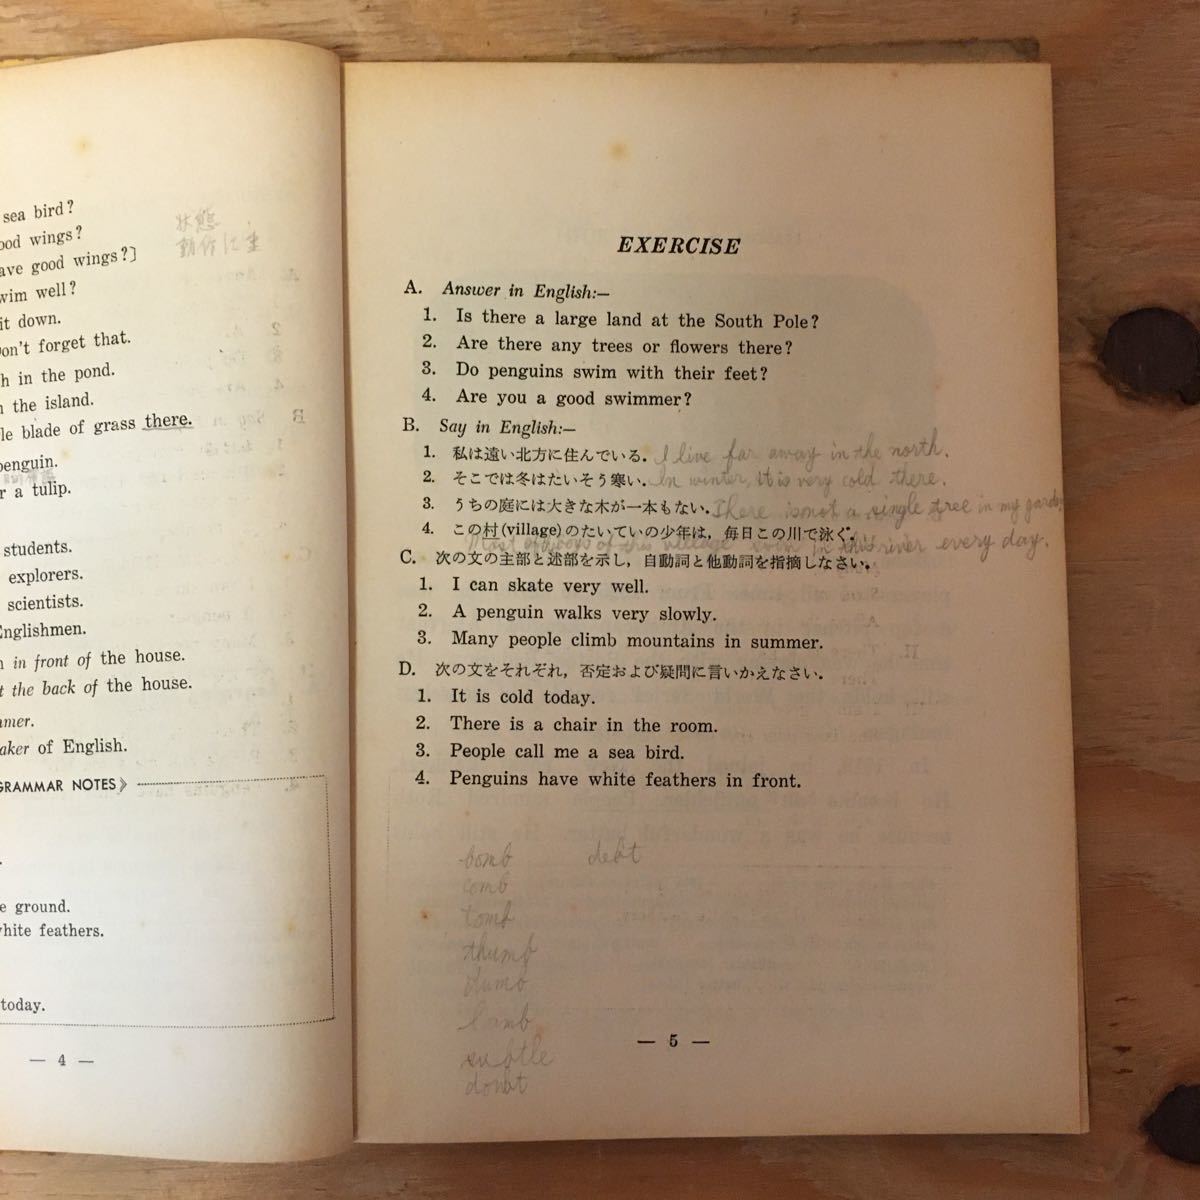 sea bird?
ood wings?
ave good wings?]
wim well?
it down.
on't forget that.
h in the pond.
n the island.
le blade of grass there.
penguin.
r a tulip.
students.
explorers.
scientists.
nglishmen.
n in front of the house.
t the back of the house.
mer.
aker of English.
GRAMMAR NOTES》
e ground.
hite feathers.
today.
— 4 —
状態
動作
EXERCISE
A. Answer in English:—
1. Is there a large land at the South Pole?
2. Are there any trees or flowers there?
3. Do penguins swim with their feet?
4. Are you a good swimmer?
B. Say in English:—
1. 私は遠い北方に住んでいる. I live far away in the north.
2. そこでは冬はたいそう寒い. In winter, it is very cold there.
3. うちの庭には大きな木が一本もない. There is not a single tree in my garden
4. この村(village)のたいていの少年は, 毎日この川で泳ぐ.
Most of boys of this village swim in this river every day.
C. 次の文の主部と述部を示し, 自動詞と他動詞を指摘しなさい.
1. I can skate very well.
2. A penguin walks very slowly.
3. Many people climb mountains in summer.
D. 次の文をそれぞれ, 否定および疑問に言いかえなさい.
1. It is cold today.
2. There is a chair in the room.
3. People call me a sea bird.
4. Penguins have white feathers in front.
bomb debt
comb
tomb
thumb
dumb
lamb
subtle
doubt
— 5 —